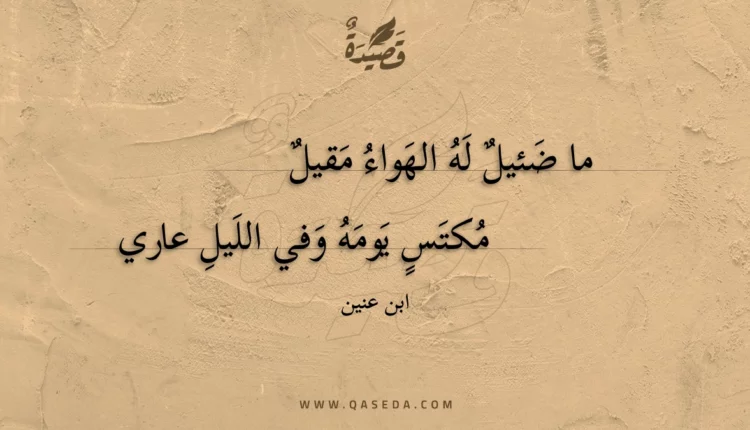 قَصِيْدَةٌ
ما ضَئيلٌ لَهُ الهَواءُ مَقيلٌ
مُكتَسٍ يَومَهُ وَفي اللَيلِ عاري
ابن عنين
WWW.QASEDA.COM